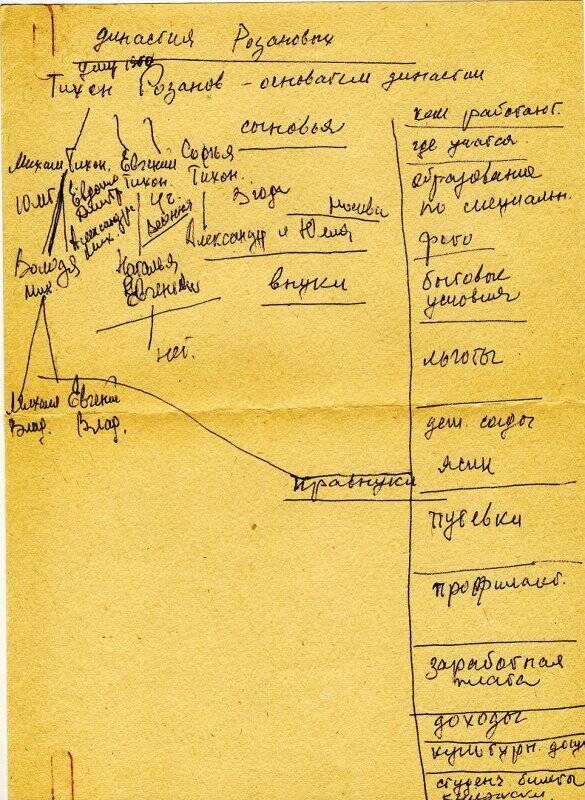 династия Розановых
умер
Тихон Розанов - основатель династии
сыновья
Михаил Тихон. Евгений Софья
Тихон. Тихон.
Евгений
Александр
Мих.
Чг.
военная
3 года
Москва
Александр и Юлия
Володя
Мих.
Наталья
Евгеньев
внуки
нет.
Михаил Евгений
Влад. Влад.
правнуки
кем работают.
где учатся.
образование
по специальн.
фото
бытовые
условия
льготы
дет. сады
ясли
путевки
профилакт.
заработная
плата
доходы
культурн. досуг
студенч. билеты